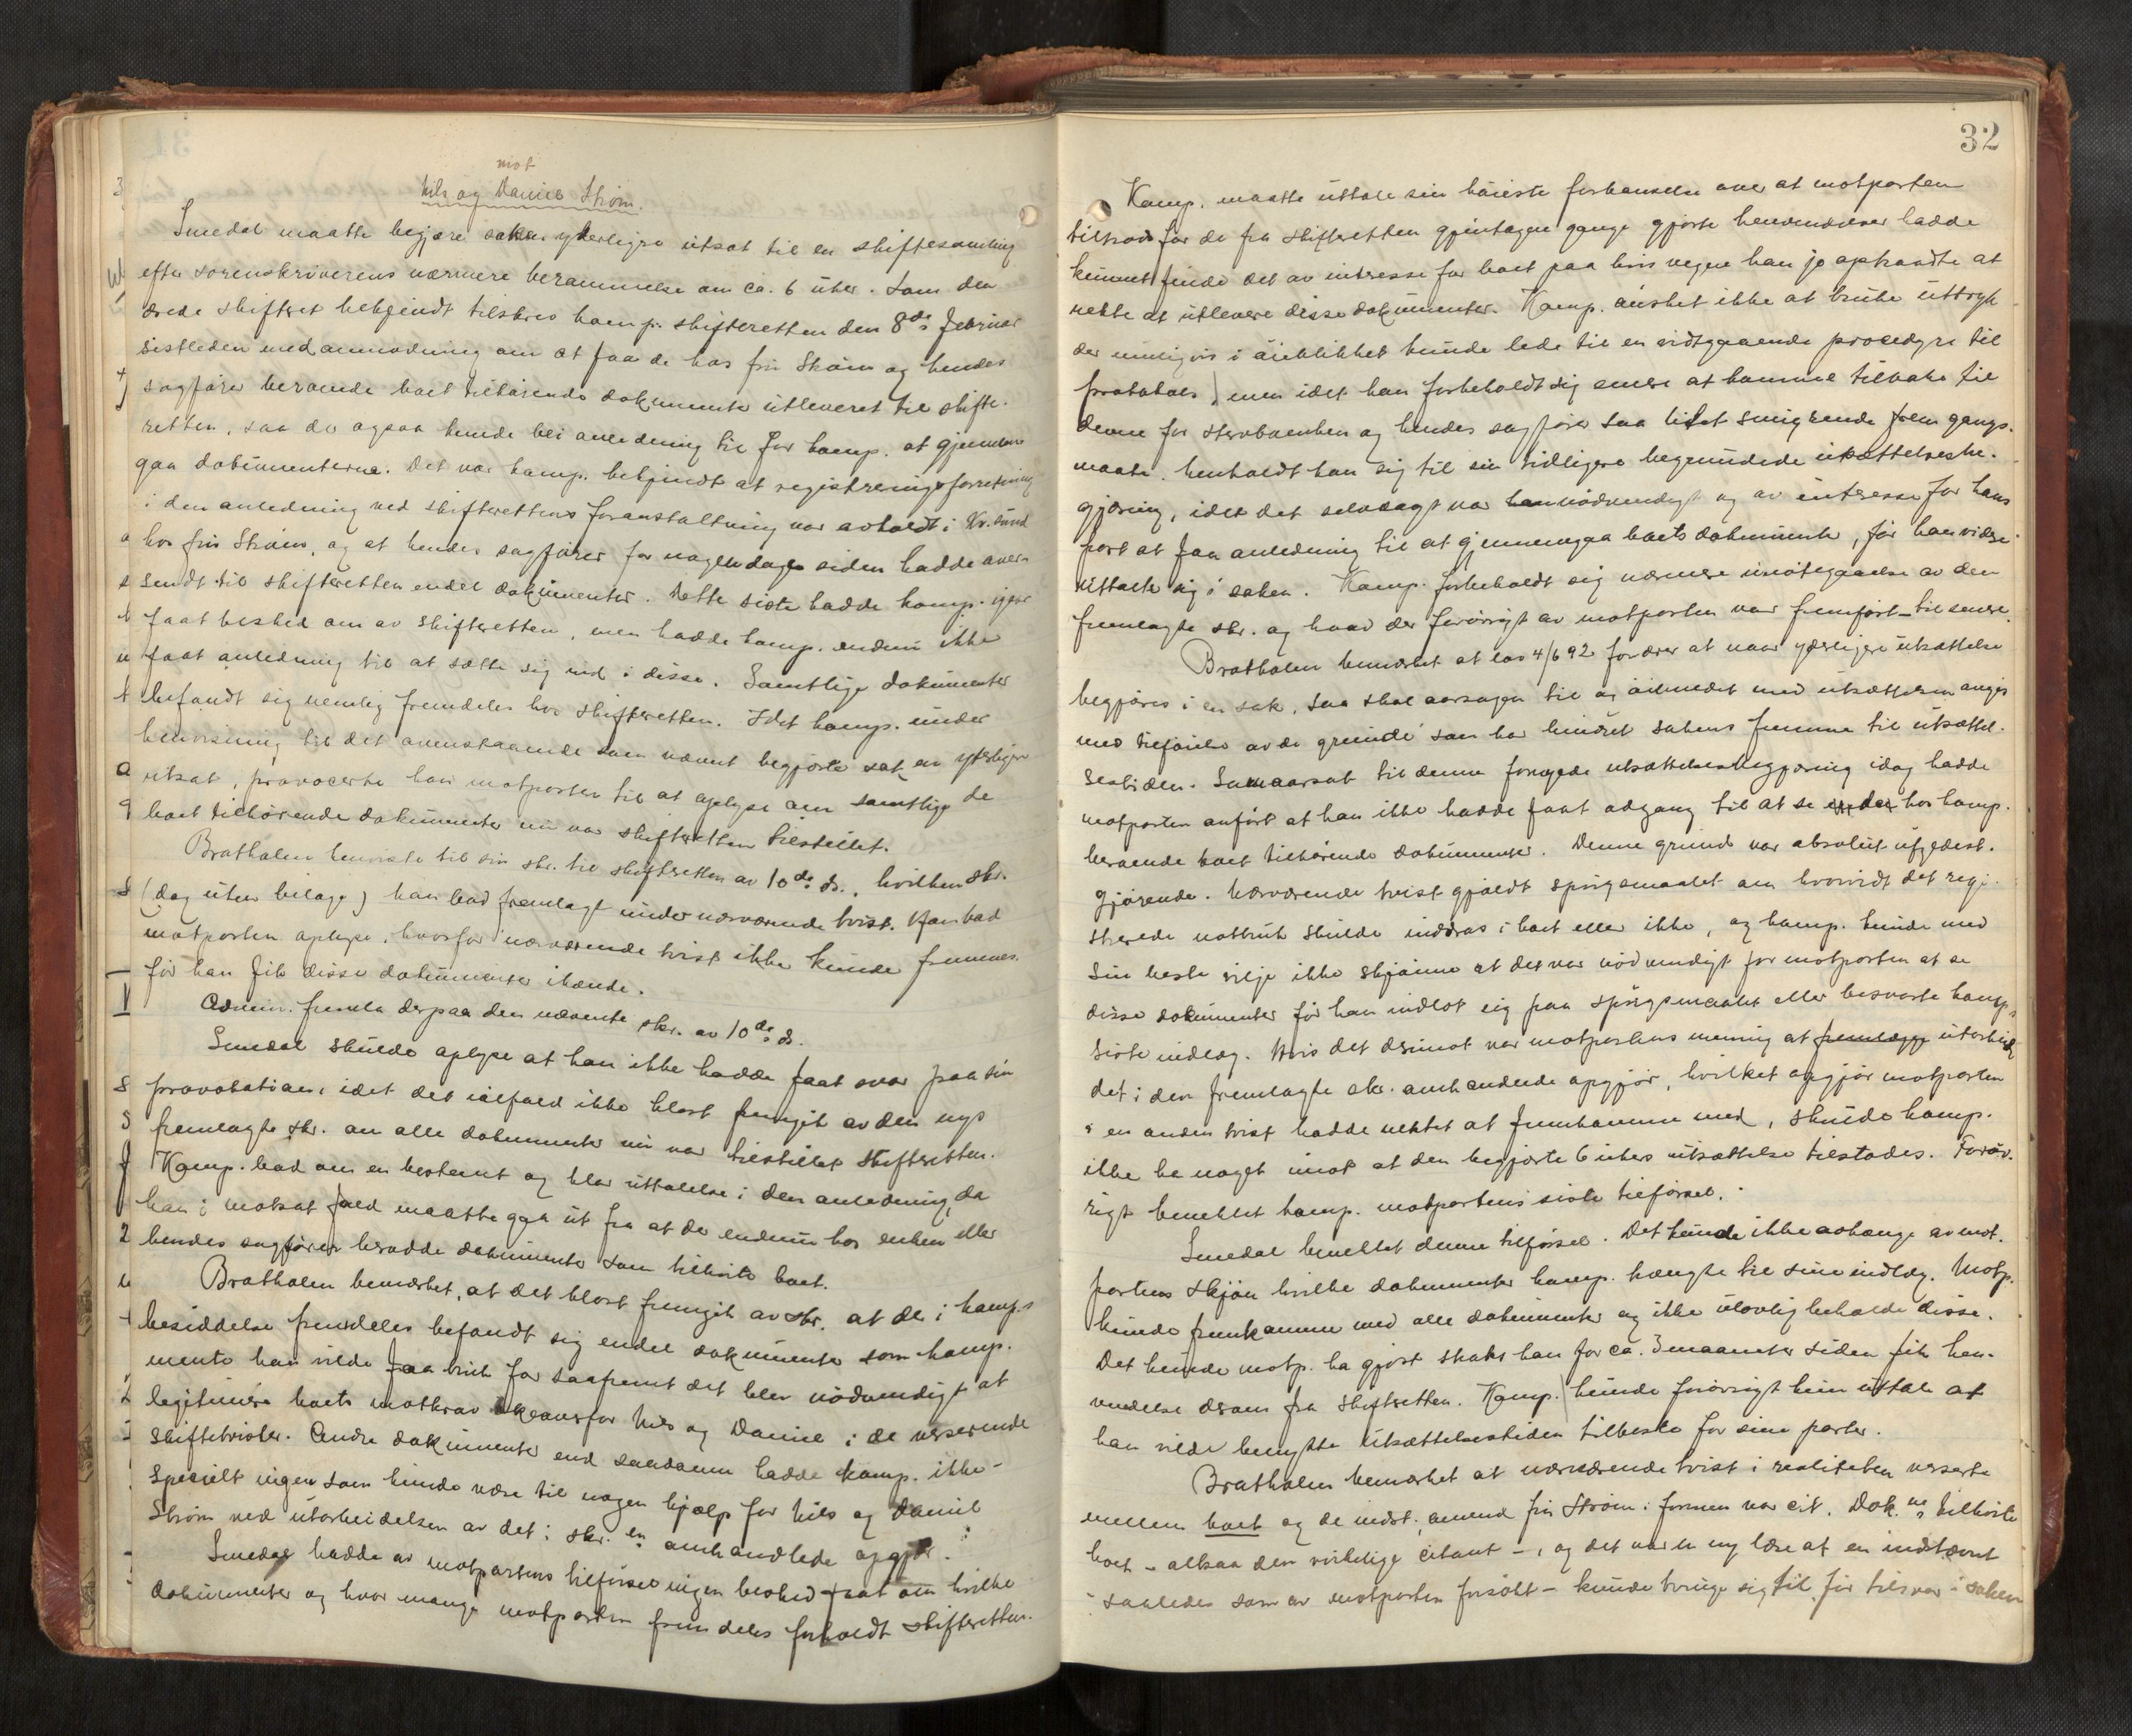 mot
Nils og Daniel Strøm.
Smedal maatte begjære saken yderligere utsat til en skiftesamling
efter sorenskriverens nærmere berammelse om ca. 6 uker. Som den
ærede skifteret bekjendt tilskrev komp. skifteretten den 8de februar
sistleden med anmodning om at faa de hos fru Strøm og hendes
sagfører beroende boet tilhørende dokumenter utleveret til skifte-
retten, saa der ogsaa kunde bli anledning til for komp. at gjennem-
gaa dokumenterne. Det var komp. bekjendt at registreringsforretning
i den anledning ved skifterettens foranstaltning var avholdt i Kr.sund
hos fru Strøm, og at hendes sagfører for nogen dage siden hadde over-
sendt til skifteretten endel dokumenter. Dette siste hadde komp. igaar
faat besked om av skifteretten, men hadde komp. endnu ikke
faat anledning til at sætte sig ind i disse. Samtlige dokumenter
befandt sig nemlig fremdeles hos skifteretten. Idet komp. under
henvisning til det ovenstaaende som nævnt begjærte saken yderligere
utsat, provocerte han motparten til at oplyse om samtlige de
boet tilhørende dokumenter nu var skifteretten tilstillet.
Bratholm henviste til sin skr. til skifteretten av 10de ds., hvilken skr.
(dog uten bilage) han bad fremlagt under nærværende tvist. Han bad
motparten oplyse, hvorfor nærværende tvist ikke kunde fremmes
før han fik disse dokumenter ihænde.
Admin. fremla derpaa den nævnte skr. av 10de ds.
Smedal skulde oplyse at han ikke hadde faat svar paa sin
provokation, idet det ialfald ikke klart fremgik av den nys
fremlagte skr. om alle dokumenter nu var tilstillet skifteretten.
Komp. bad om en bestemt og klar uttalelse i den anledning, da
han i motsat fald maatte gaa ut fra at der endnu hos enken eller
hendes sagfører berodde dokumenter som tilhørte boet.
Bratholm bemerket, at det klart fremgik av skr. at der i komp.s
besiddelse fremdeles befandt sig endel dokumenter som komp.
mente han vilde faa bruk for saafremt det blev nødvendigt at
legitimere boets motkrav likeoverfor Nils og Daniel i de verserende
skiftetvister. Andre dokumenter end saadanne hadde komp. ikke -
specielt ingen som kunde være til nogen hjælp for Nils og Daniel
Strøm ved utarbeidelsen av det i skr. en omhandlede opgjør.
Smedal hadde av motpartens tilførsel ingen besked faat om hvilke
dokumenter og hvor mange motparten fremdeles forholdt skifteretten.
32
Komp. maatte uttale sin høieste forbauselse over at motparten
tiltrods for de fra skifteretten gjentagne gange gjorte henvendelser hadde
kunnet finde det av interesse for boet paa hvis vegne han jo optraadte at
nekte at utlevere disse dokumenter. Komp. ønsket ikke at bruke uttryk
der muligvis i øieblikket kunde lede til en vidtgaaende procedyre til
protokols, men idet han forbeholdt sig senere at komme tilbake til
denne for stervboenken og hendes sagfører saa litet smigrende frem gangs-
maate henholdt han sig til sin tidligere begrundede utsættelsesbe-
gjæring, idet det selvsagt var nødvendigt og av interesse for hans
part at faa anledning til at gjennemgaa boets dokumenter, før han videre
uttalte sig i saken. Komp. forbeholdt sig nærmere imøtegaaelse av den
fremlagte skr. og hvad der forøvrigt av motparten var fremført - til senere.
Bratholm bemerket at lov 4/6 92 fordrer at naar yderligere utsættelse
begjæres i en sak, saa skal aarsagen til og øiemedet med utsættelsen angis
med tilføielse av de grunde som har hindret sakens fremme til utsættel-
sestiden. Som aarsak til denne fornyede utsættelsesbegjæring idag hadde
motparten anført at han ikke hadde faat adgang til at se de hos komp.
beroende boet tilhørende dokumenter. Denne grund var absolut ufyldest-
gjørende. Nærværende tvist gjaldt spørgsmaalet om hvorvidt det regi-
strerede notbruk skulde inddras i boet eller ikke, og komp. kunde med
sin beste vilje ikke skjønne at det var nødvendigt for motparten at se
disse dokumenter før han indlot sig paa spørgsmaalet eller besvarte komp.s
siste indlæg. Hvis det derimot var motpartens mening at utarbeide
det i den fremlagte skr. omhandlede opgjør, hvilket opgjør motparten
i en anden tvist hadde nektet at fremkomme med, skulde komp.
ikke ha noget imot at den begjærte 6 ukers utsættelse tilstodes. Forøv-
rigt benektet komp. motpartens siste tilførsel.
Smedal benektet denne tilførsel. Det kunde ikke avhænge av mot-
partens skjøn hvilke dokumenter komp. trængte til sine indlæg. Motp.
kunde fremkomme med alle dokumenter og ikke ulovlig beholde disse.
Det kunde motp. ha gjort straks han for ca. 3 maaneder siden fik hen-
vendelse derom fra skifteretten. Komp. kunde forøvrigt kun uttale at
han vilde benytte utsættelsestiden tilbeste for sine parter.
Bratholm bemerket at nærværende tvist i realiteten verserte
mellem boet og de indst., omend fru Strøm i formen var cit. Dok.ne tilhørte
boet - altsaa den virkelige citant -, og det var en ny lære at en indstevnt
- saaledes som av motparten forsøkt - kunde tvinge sig til, før tilsvar i saken